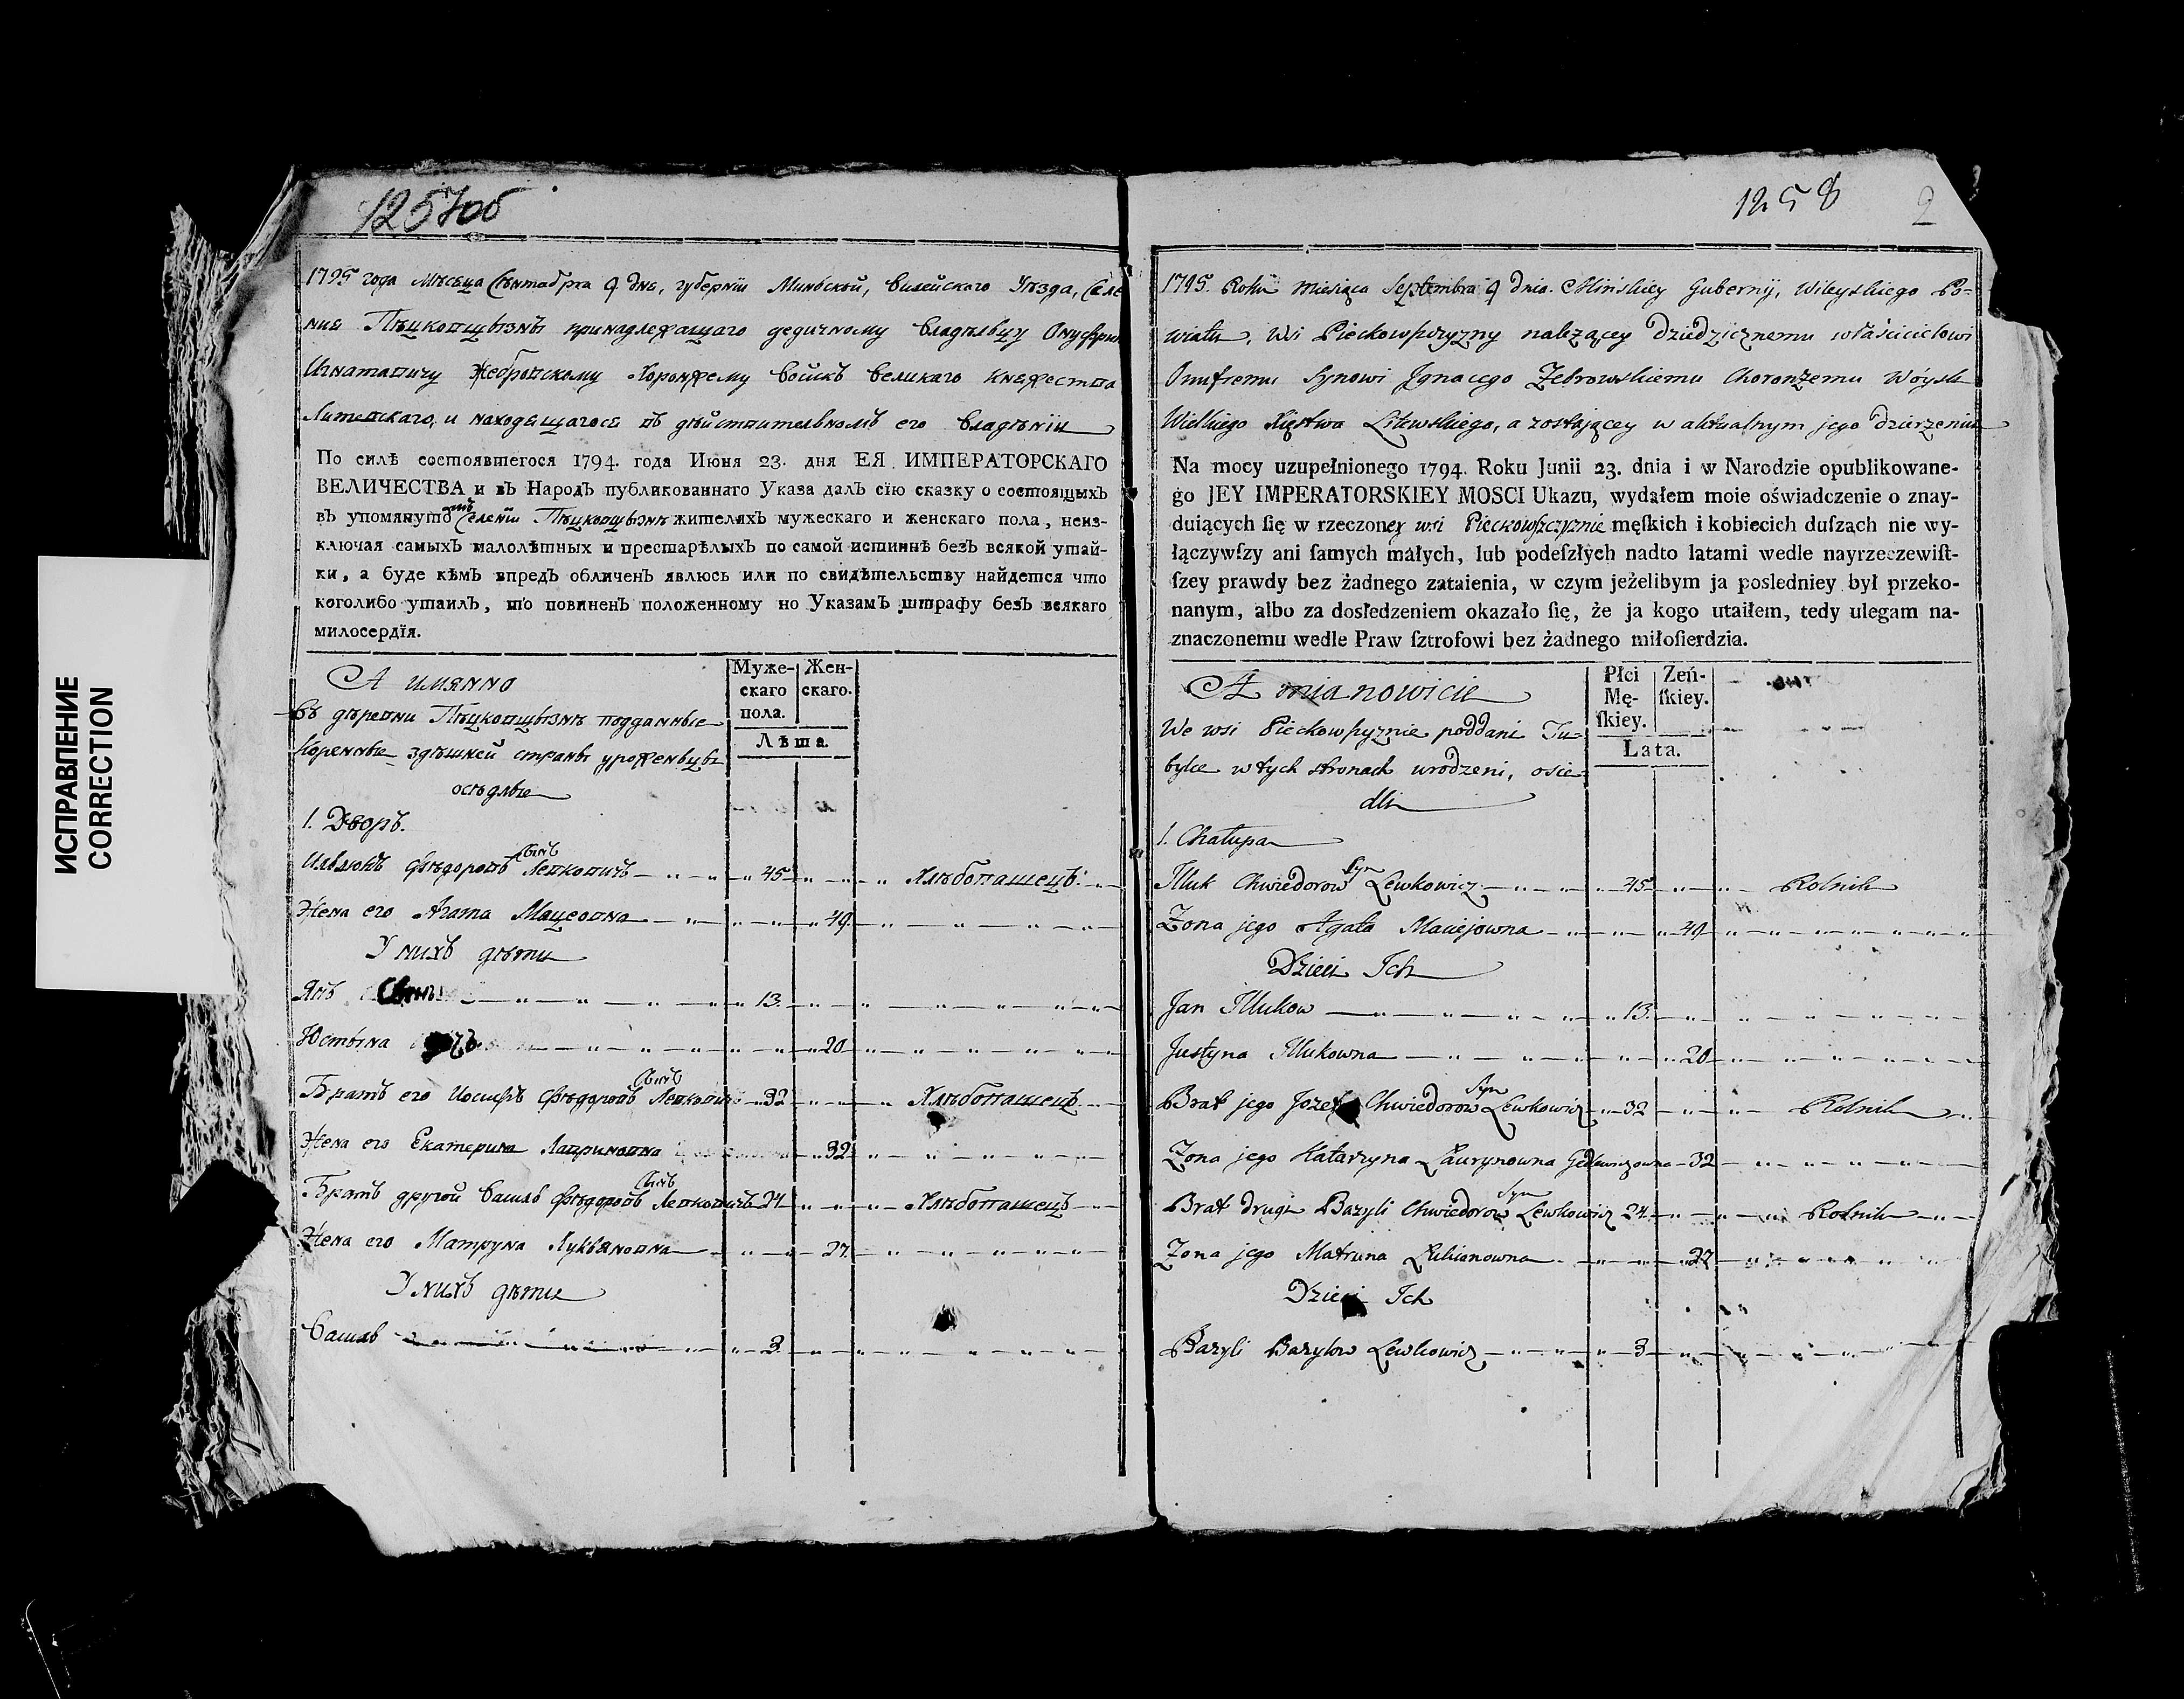 ИСПРАВЛЕНИЕ
CORRECTION
1257об
1795 года Мѣсяца Сентабря 9 дня, губерніи Минской, Вилейскаго Уѣзда, Селе
ния Пѣцковщизны принадлежащаго дедичному владѣльцу Онуфрию
Игнатовичу Жебровскому Хоронжему войскъ Великаго Княжества
Литовскаго, и находящагося въ дѣйствительномъ его владѣніи
По силѣ состоявшегося 1794. года Июня 23. дня ЕЯ ИМПЕРАТОРСКАГО
ВЕЛИЧЕСТВА и въ Народъ публикованнаго Указа далъ сїю сказку о состоящыхъ
въ упомянутомъ Селеніи Пѣцковщызнѣ жителяхъ мужескаго и женскаго пола, неиз-
ключая самыхъ малолѣтныхъ и престарѣлыхъ по самой истиннѣ безъ всякой утай-
ки, а буде кѣмъ впредъ обличенъ явлюсь или по свидѣтельству найдется что
коголибо утаилъ, то повиненъ положенному по Указамъ штрафу безъ всякаго
милосердїя.
А имянно
Муже-
скаго
пола.
Жен-
скаго.
Лѣта
въ деревни Пѣцковщызнѣ подданные
Коренные здѣшней страны уроженьцы
осѣдлые
1. Дворъ.
Ильлюкъ Фѣдоровъ Сынъ Левковичъ 45 Хлѣбопашецъ
Жена его Агата Мацеовна 49
У нихъ дѣти
Янъ Сынъ 13
Юстына 20
Братъ его Иосифъ Фѣдоровъ Сынъ Левковичъ 32 Хлѣбопашецъ
Жена его Екатерина Лавриновна 32
Братъ другой Василь Фѣдоровъ Сынъ Левковичъ 24 Хлѣбопашецъ
Жена его Матруна Лукьяновна 27
У нихъ дѣти
Василь 3
1258 2
1795. Roku Miesiąca Septembra 9 dnia. Mińskiey Gubernij, Wileyskiego Po-
wiatu, Wsi Pieckowszczyzny należącey Dziedzicznemu właścicielowi
Onufremu Synowi Jgnacego Żebrowskiemu Choronżemu Wóysk
Wielkiego Xięstwa Litewskiego, a zostającey w aktualnym jego dzierżeniu
Na mocy uzupełnionego 1794. Roku Junii 23. dnia i w Narodzie opublikowane-
go JEY IMPERATORSKIEY MOSCI Ukazu, wydałem moie oświadczenie o znay-
duiących ſię w rzeczoney wsi Pieckowszczyznie męſkich i kobiecich duſzach nie wy-
łączywſzy ani ſamych małych, lub podeſzłych nadto latami wedle nayrzeczewiſt-
ſzey prawdy bez żadnego zataienia, w czym jeżelibym ja posledniey był przeko-
nanym, albo za dosledzeniem okazało ſię, że ja kogo utaiłem, tedy ulegam na-
znaczonemu wedle Praw ſztrofowi bez żadnego miłoſierdzia.
A mianowicie
Płci
Mę-
ſkiey.
Zeń-
ſkiey.
Lata.
We wsi Pieckowszczyznie poddani Tu-
bylce w tych stronach urodzeni, osie-
dli
1. Chałupa
Jlluk Chwiedorow Syn Lewkowicz 45 Rolnik
Żona jego Agata Maciejowna 49
Dzieci Jch
Jan Jllukow 13
Justyna Jllukowna 20
Brat jego Jozef Chwiedorow Syn Lewkowicz 32 Rolnik
Żona jego Katarzyna Laurynowna 32
Brat drugi Bazyli Chwiedorow Syn Lewkowicz 24 Rolnik
Żona jego Matruna Łukianowna 27
Dzieci Jch
Bazyli Bazylow Lewkowicz 3